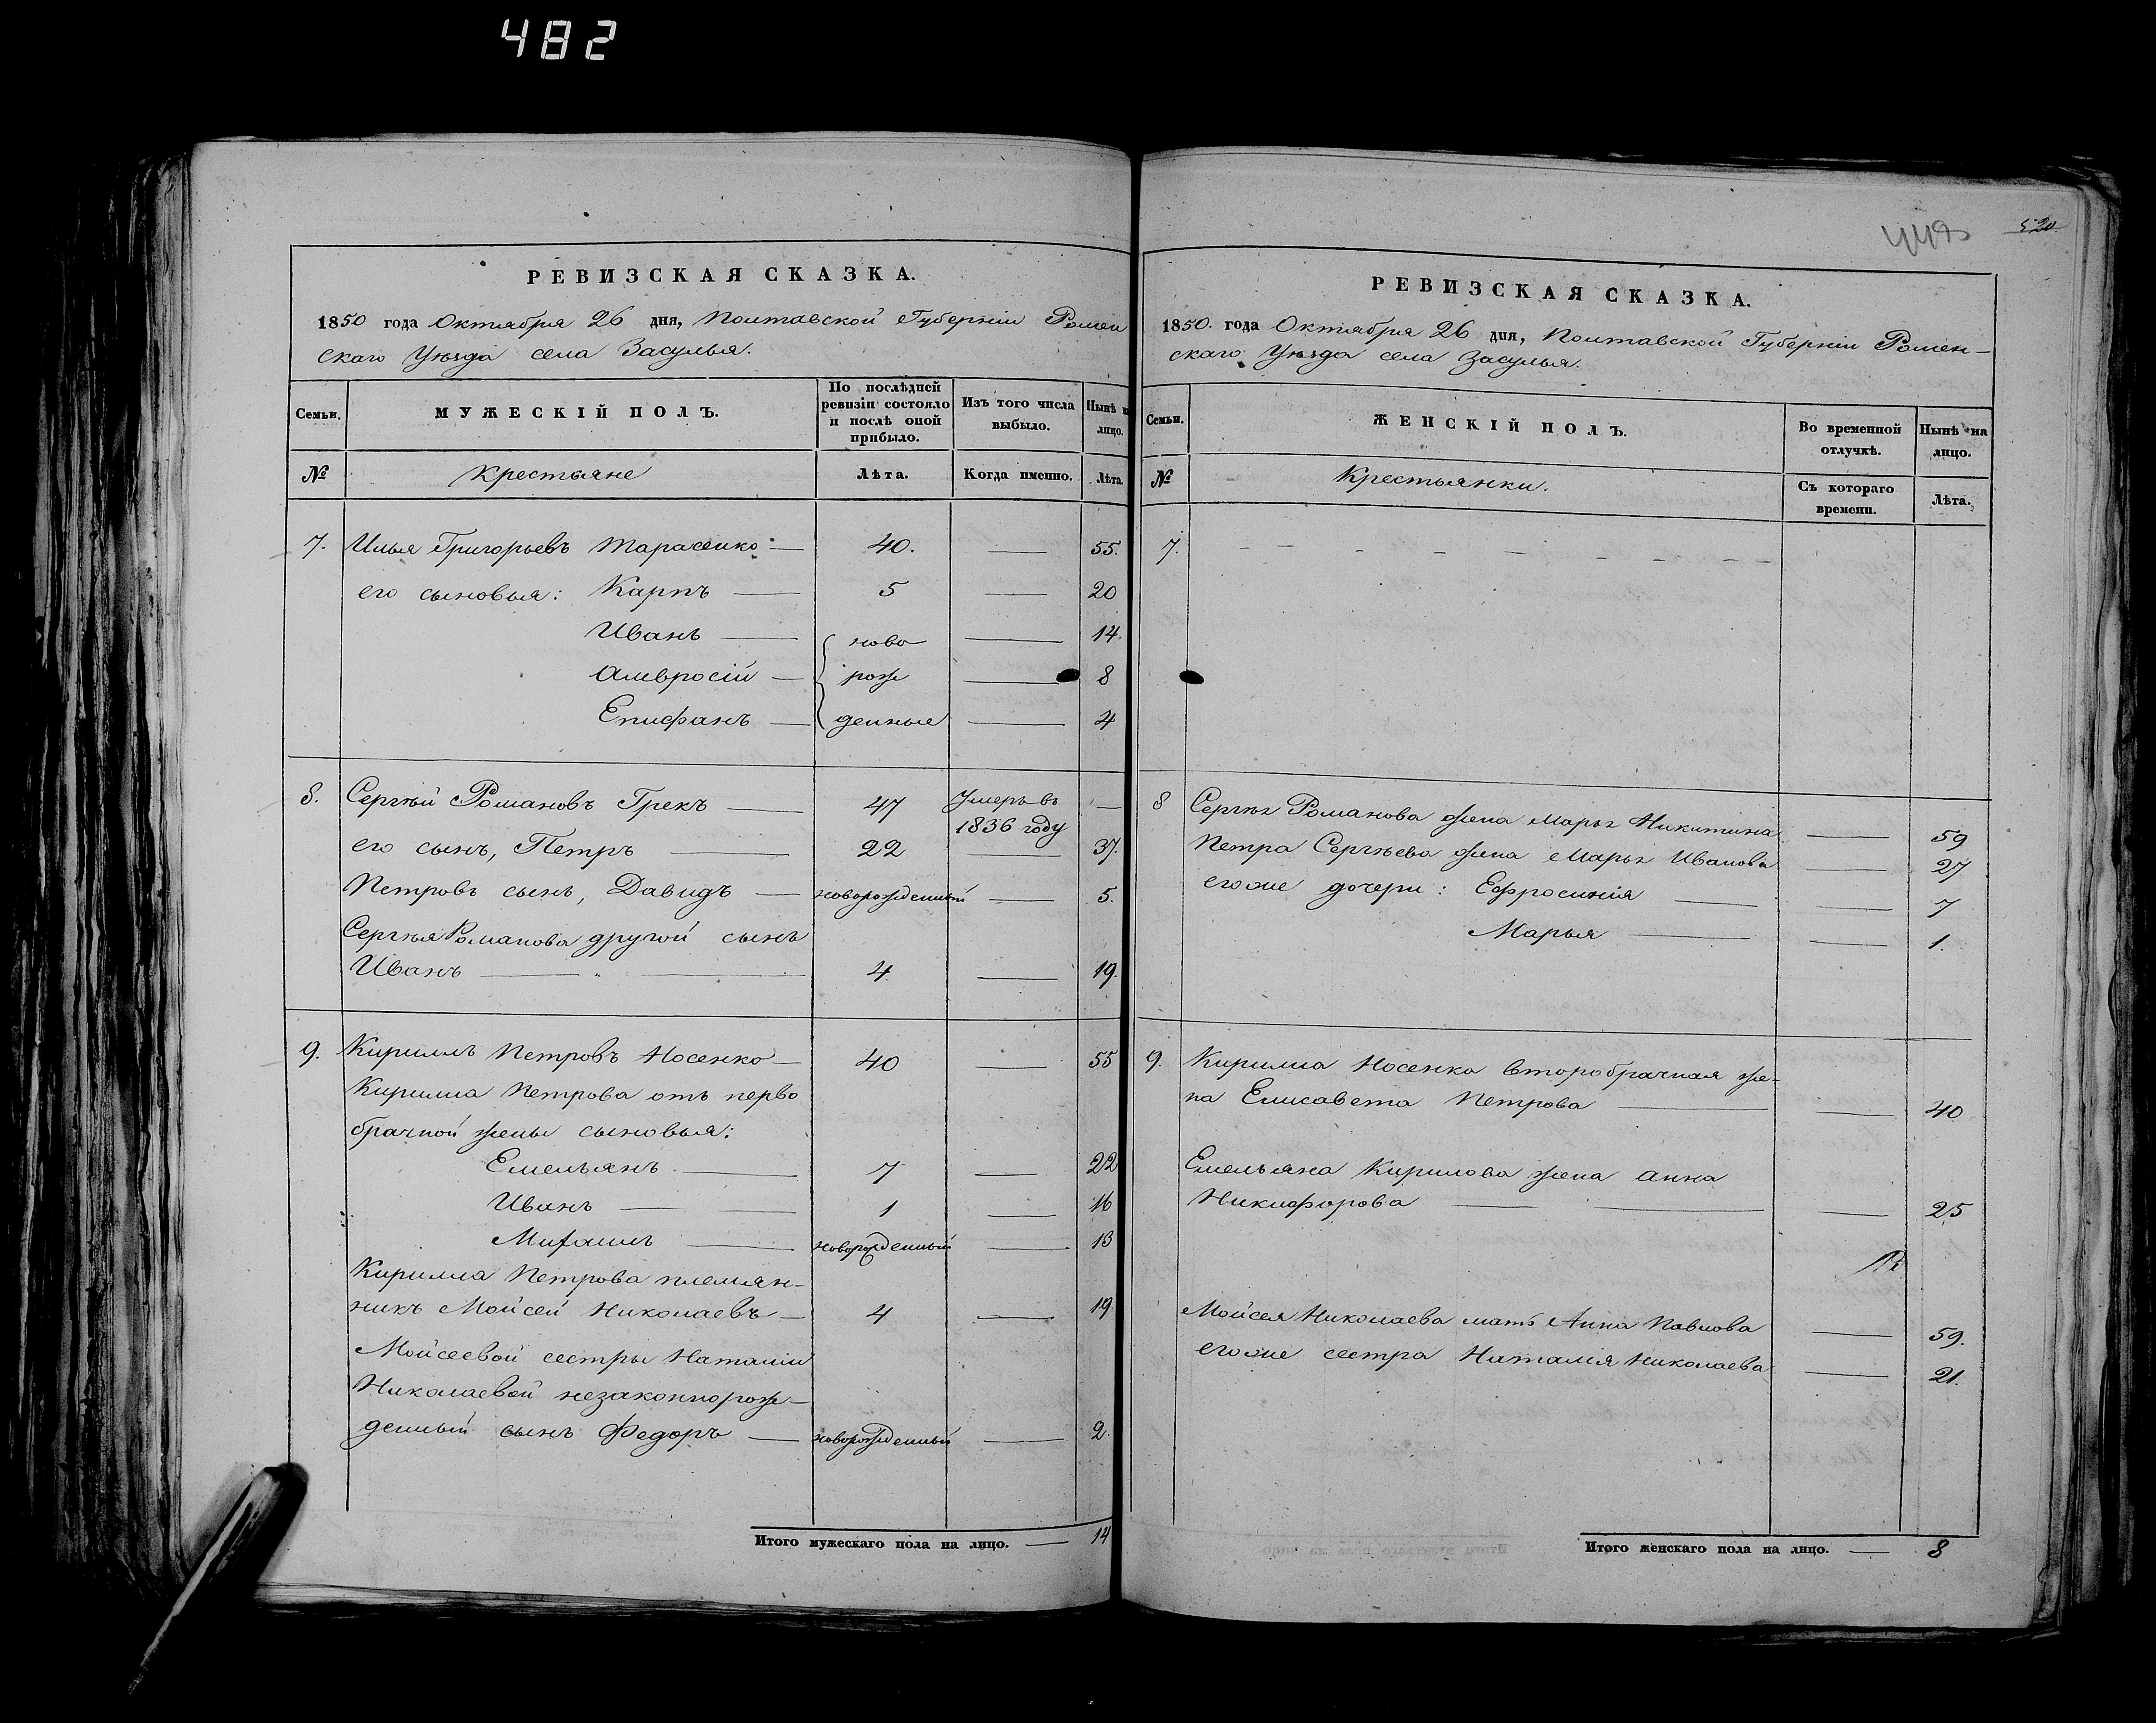 482
520
РЕВИЗСКАЯ СКАЗКА.
1850 года Октября 26 дня, Полтавской Губерніи Ромен
скаго Уѣзда села Засулья.
Семьи. МУЖЕСКІЙ ПОЛЪ. По послѣдней ревизіи состояло и послѣ оной прибыло. Изъ того числа выбыло. Нынѣ на лицо.
№ Крестьяне Лѣта. Когда именно. Лѣта.
7. Илья Григорьевъ Тарасенко — 40. — 55.
его сыновья: Карпъ — 5 — 20
Иванъ — ново — 14.
Амвросій — рож — 8
Епифанъ — денные — 4
8. Сергѣй Романовъ Грекъ — 47 Умеръ въ —
1836 году
его сынъ, Петръ — 22 — 37.
Петровъ сынъ, Давидъ — новорожденный — 5.
Сергѣя Романова другой сынъ
Иванъ — 4. — 19.
9. Кириллъ Петровъ Носенко — 40 — 55
Кирилла Петрова отъ перво
брачной жены сыновья:
Емельянъ — 7 — 22
Иванъ — 1 — 16
Михаилъ — новорожденный — 13
Кирилла Петрова племян-
никъ Мойсей Николаевъ — 4 — 19.
Мойсеевой сестры Наталіи
Николаевой незаконнорож-
денный сынъ Федоръ — новорожденный — 2.
Итого мужескаго пола на лицо. — 14
РЕВИЗСКАЯ СКАЗКА.
1850. года Октября 26 дня, Полтавской Губерніи Ромен-
скаго Уѣзда села Засулья.
Семьи. ЖЕНСКІЙ ПОЛЪ. Во временной отлучкѣ. Нынѣ на лицо.
№ Крестьянки. Съ котораго времени. Лѣта.
7. — — — — — — — — —
8 Сергѣя Романова жена Марья Никитина — 59
Петра Сергѣева жена Марья Иванова — 27
егоже дочери: Ефросинія — — 7
Марья — — 1.
9. Кирилла Носенка второбрачная же-
на Елисавета Петрова — — 40
Емельяна Кирилова жена Анна
Никифорова — — 25
Мойсея Николаева мать Анна Павлова — 59.
егоже сестра Наталія Николаева — 21.
Итого женскаго пола на лицо. — 8